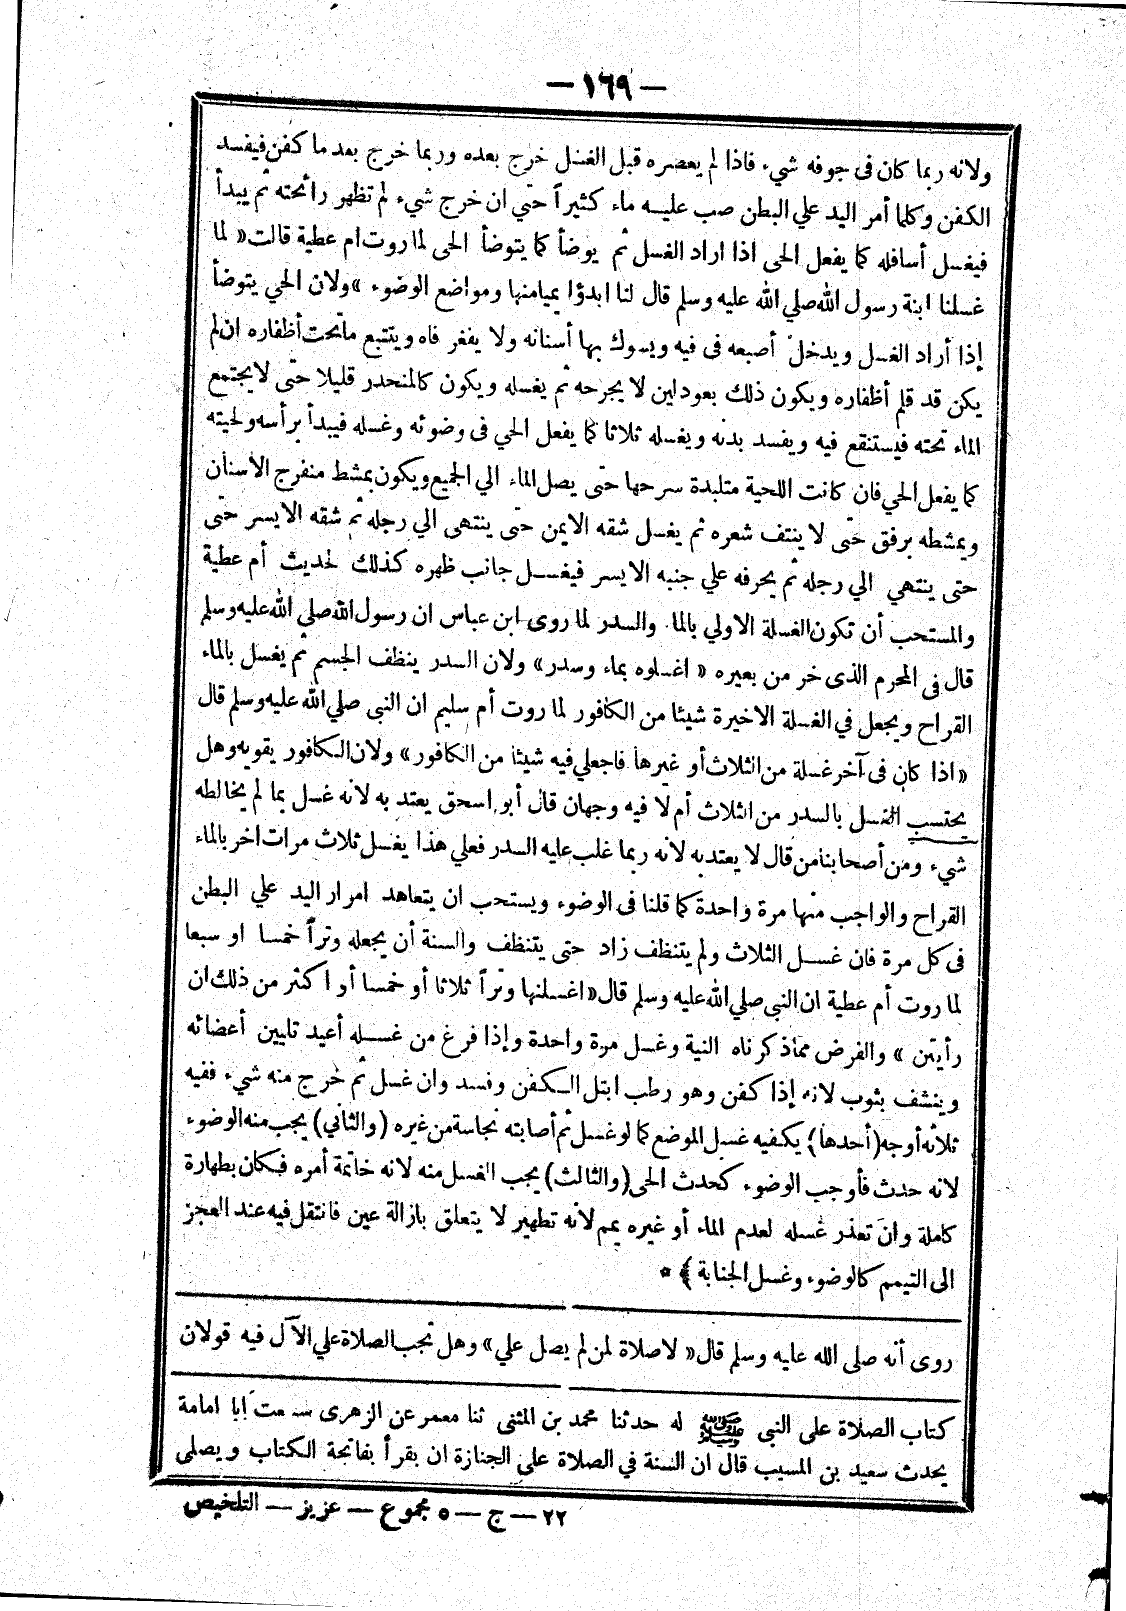 — ١٦٩ —
ولانه ربما كان فى جوفه شيء فاذا لم يعصره قبل الغسل خرج بعده وربما خرج بعد ما كفن فيفسد
الكفن وكلما أمر اليد علي البطن صب عليه ماء كثيراً حتي ان خرج شيء لم تظهر رائحته ثم يبدأ
فيغسل أسافله كما يفعل الحى اذا اراد الغسل ثم يوضأ كما يتوضأ الحى لما روت ام عطية قالت « لما
غسلنا ابنة رسول الله صلي الله عليه وسلم قال لنا ابدؤا بميامنها ومواضع الوضوء » ولان الحي يتوضأ
إذا أراد الغسل ويدخل أصبعه فى فيه ويسوك بها أسنانه ولا يفغر فاه ويتتبع ماتحت أظفاره ان لم
يكن قد قلم أظفاره ويكون ذلك بعود لين لا يجرحه ثم يغسله ويكون كالمنحدر قليلا حتى لا يجتمع
الماء تحته فيستنقع فيه ويفسد بدنه ويغسله ثلاثا كما يفعل الحي فى وضوئه وغسله فيبدأ برأسه ولحيته
كما يفعل الحي فان كانت اللحية متلبدة سرحها حتى يصل الماء الي الجميع ويكون بمشط منفرج الأسنان
ويمشطه برفق حتى لا ينتف شعره ثم يغسل شقه الايمن حتى ينتهى الي رجله ثم شقه الايسر حتى
حتى ينتهي الي رجله ثم يحرفه علي جنبه الايسر فيغسل جانب ظهره كذلك لحديث أم عطية
والمستحب أن تكون الغسلة الاولي بالماء والسدر لما روى ابن عباس ان رسول الله صلي الله عليه وسلم
قال فى المحرم الذى خر من بعيره « اغسلوه بماء وسدر » ولان السدر ينظف الجسم ثم يغسل بالماء
القراح ويجعل في الغسلة الاخيرة شيئا من الكافور لما روت أم سليم ان النبى صلي الله عليه وسلم قال
« اذا كان فى آخر غسلة من الثلاث أو غيرها فاجعلي فيه شيئا من الكافور » ولان الكافور يقويه وهل
يحتسب الغسل بالسدر من الثلاث أم لا فيه وجهان قال أبو اسحق يعتد به لانه غسل بما لم يخالطه
شيء ومن أصحابنا من قال لا يعتد به لانه ربما غلب عليه السدر فعلي هذا يغسل ثلاث مرات اخر بالماء
القراح والواجب منها مرة واحدة كما قلنا فى الوضوء ويستحب ان يتعاهد امرار اليد علي البطن
فى كل مرة فان غسل الثلاث ولم يتنظف زاد حتى يتنظف والسنة أن يجعله وتراً خمسا او سبعا
لما روت أم عطية ان النبى صلي الله عليه وسلم قال « اغسلنها وتراً ثلاثا أو خمسا أو اكثر من ذلك ان
رأيتن » والفرض مماذكرناه النية وغسل مرة واحدة وإذا فرغ من غسله أعيد تليين أعضائه
وينشف بثوب لانه إذا كفن وهو رطب ابتل الكفن وفسد وان غسل ثم خرج منه شيء ففيه
ثلاثه أوجه ( أحدها ) يكفيه غسل الموضع كما لو غسل ثم أصابته نجاسة من غيره ( والثاني ) يجب منه الوضوء
لانه حدث فأوجب الوضوء كحدث الحى ( والثالث ) يجب الغسل منه لانه خاتمة أمره فكان بطهارة
كاملة وان تعذر غسله لعدم الماء أو غيره يمم لأنه تطهير لا يتعلق بازالة عين فانتقل فيه عند العجز
الى التيمم كالوضوء وغسل الجنابة ﴾ *
روى أنه صلى الله عليه وسلم قال « لا صلاة لمن لم يصل علي » وهل تجب الصلاة علي الآل فيه قولان
كتاب الصلاة على النبى ﷺ له حدثنا محمد بن المثنى ثنا معمر عن الزهرى سمعت أبا امامة
يحدث سعيد بن المسيب قال ان السنة في الصلاة على الجنازة ان يقرأ بفاتحة الكتاب ويصلى
٢٢ — ج — ٥ مجموع — عزيز — التلخيص